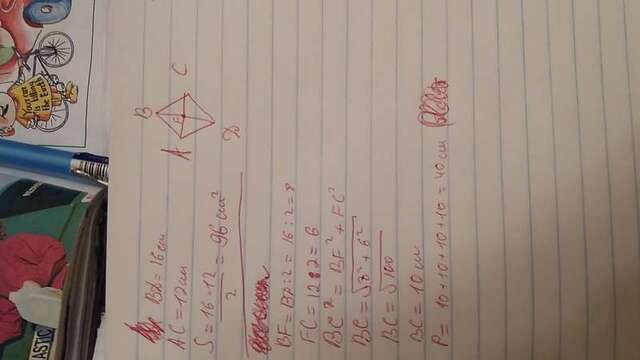 LASTIC
Your car
is killing
the Earth
BD = 16 cm
AC = 12 cm
S = 16 · 12 / 2 = 96 cm²
B
A
F
C
D
BF = BD : 2 = 16 : 2 = 8
FC = 12 : 2 = 6
BC² = BF² + FC²
BC = √8² + 6²
BC = √100
BC = 10 cm
P = 10 + 10 + 10 + 10 = 40 cm